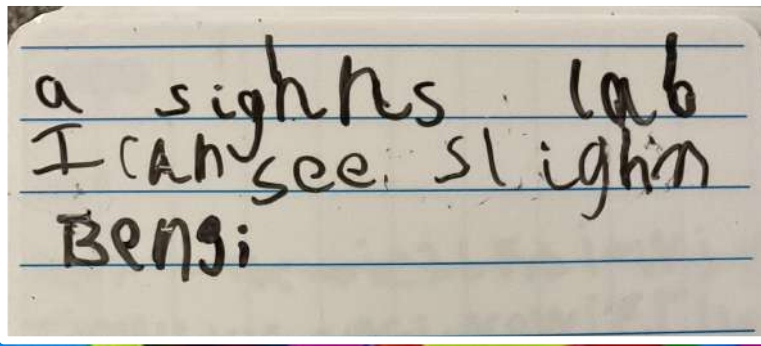 a sighns lab
I can see slighn
Bengi